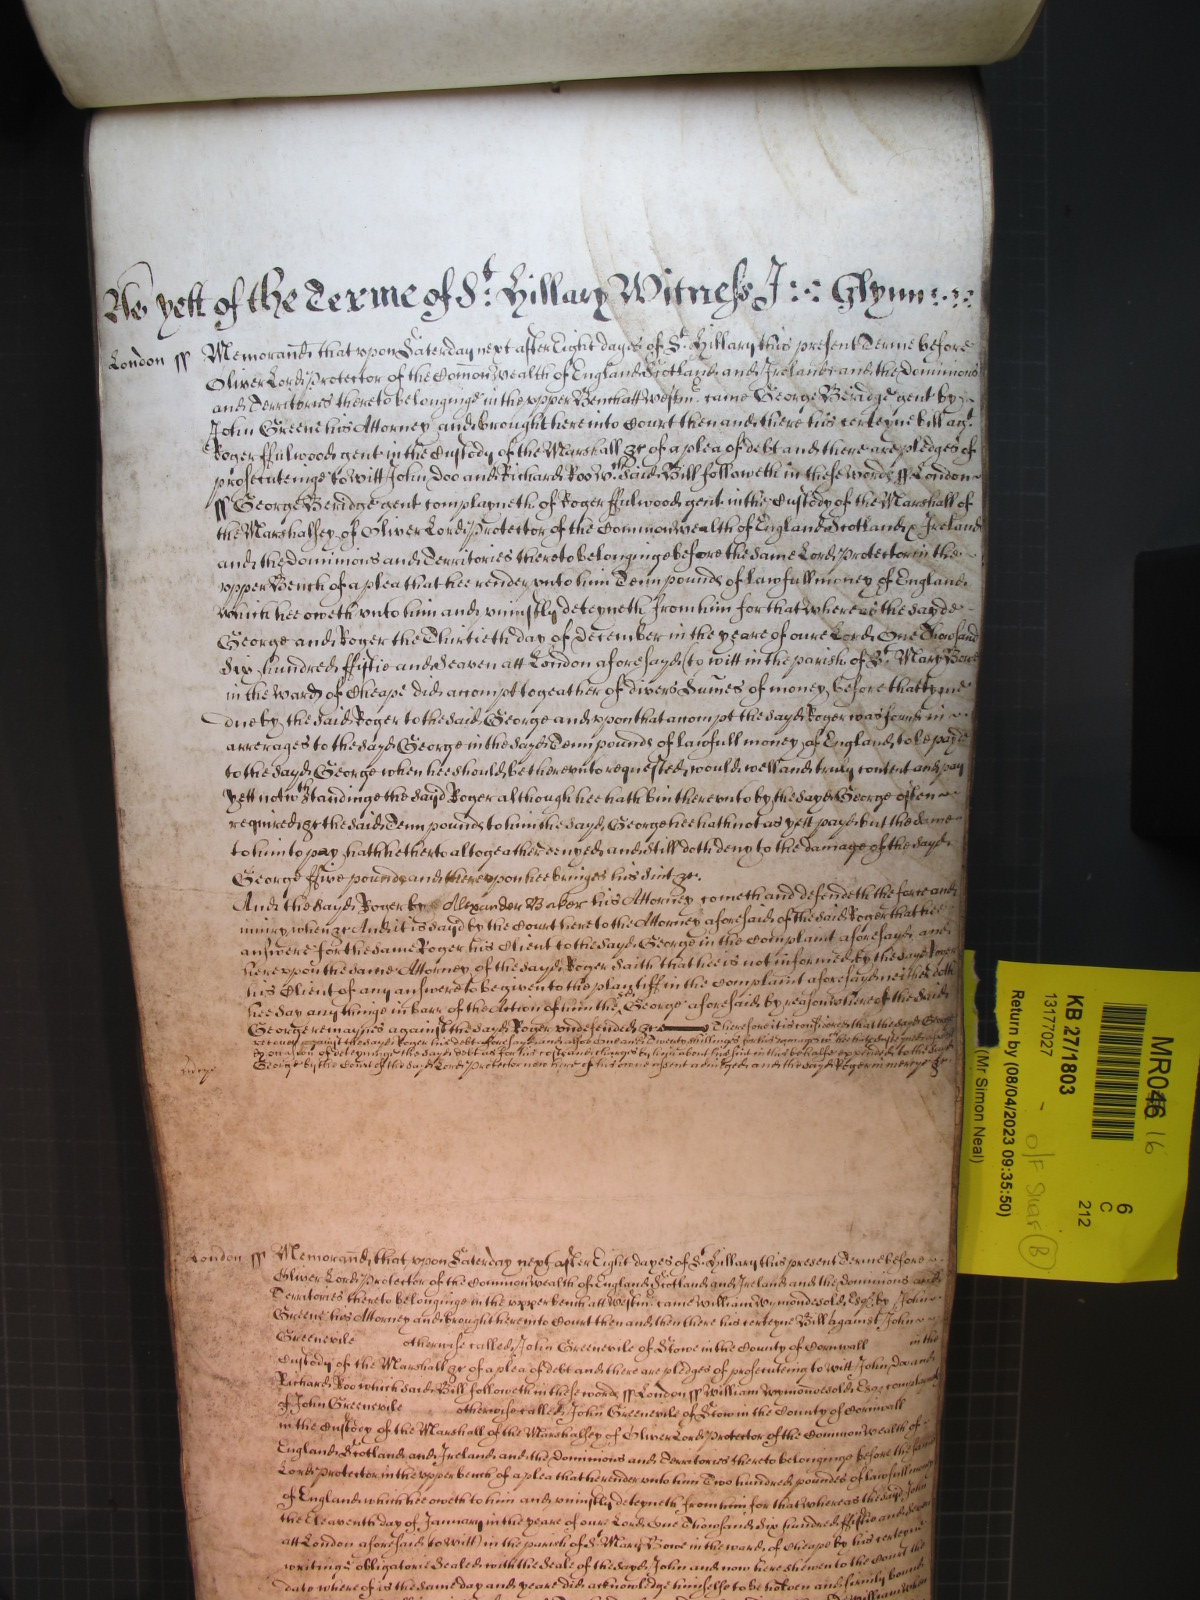 As yett of the Terme of St. Hillary Witness J: Glynn
London ss Memorand that upon Saterday next after Eight dayes of St. Hillary this present Terme before
Oliver Lord Protector of the Comonwealth of England Scotland and Ireland and the Dominions
and Territories thereto belonginge in the upper Bench att Westmr. came George Beridge gent by
John Greene his Attorney and brought here into Court then and there his certeyne bill agt.
Roger ffulwood gent in the Custody of the Marshall &c of a plea of debt and there are pledges of
prosecuteinge to witt John Doo and Richard Roo wch. said Bill followeth in these words ss London
ss George Beridge gent complayneth of Roger ffulwood gent in the Custody of the Marshall of
the Marshalsey of Oliver Lord Protector of the Commonwealth of England Scotland & Ireland
and the dominions and Territories thereto belonginge before the same Lord Protector in the
upper Bench of a plea that hee render unto him Tenn pounds of lawfull money of England
which hee oweth unto him and uniustly deteyneth from him for that whereas the sayde
George and Roger the Thirtieth day of December in the yeare of oure Lord One Thowsand
Six hundred ffiftie and Seaven att London aforesayd (to witt in the parish of St. Mary Bowe
in the ward of Cheape did accompt togeather of divers Sumes of money before that tyme
due by the said Roger to the said George and upon that accompt the sayd Roger was found in
arrerages to the sayd George in the sayd Tenn pounds of lawfull money of England to be payd
to the sayd George when hee should be thereunto requested would well and truly content and pay
yett notwthstandinge the sayd Roger although hee hath bin thereunto by the sayd George often
required &c the said Tenn pounds to him the sayd George hee hath not as yett payd but the same
to him to pay hath hetherto altogeather denyed and still doth deny to the damage of the sayd
George ffive pounds and thereupon hee bringes his suit &c.
And the sayd Roger by Alexander Baker his Attorney cometh and defendeth the force and
iniury when &c And it is sayd by the Court here to the Attorney aforesaid of the said Roger that hee
answere for the same Roger his Client to the sayd George in the Complaint aforesayd and
hereupon the same Attorney of the sayd Roger saith that hee is not informed by the sayd Roger
his Client of any answere to be given to the plaintiff in the Complaint aforesayd neither doth
hee say any thinge in barr of the Action of him the sd George aforesaid by reason whereof the said
George remaynes against the sayd Roger undefended &c Therefore it is considered that the sayd George
recover against the sayd Roger his debt aforesayd and alsoe and Twenty shillings for his damages wch hee hath susteyned
by occasion of deteyninge the sayd debt as for his costs and charges by him about his suit in this behalfe expended to the sayd
mercy George by the Court of the sayd Lord Protector now here of his owne assent adiudged and the sayd Roger in mercy &c
London ss Memorand that upon Saterday next after Eight dayes of St. Hillary this present Terme before
Oliver Lord Protector of the Commonwealth of England Scotland and Ireland and the Dominions and
Territories thereto belonginge in the upper bench att Westmr. came William Wymondesold Esqr. by John
Greene his Attorney and brought here into Court then and there his certeyne Bill against John
Greenevile otherwise called John Greenevile of Stowe in the County of Cornwall in the
Custody of the Marshall &c of a plea of debt and there are pledges of prosecuteing to witt John Doo and
Richard Roo which said Bill followeth in these words ss London ss William Wymondesold Esqr complayneth
of John Greenevile otherwise called John Greenevile of Stow in the County of Cornwall
in the Custody of the Marshall of the Marshalsey of Oliver Lord Protector of the Commonwealth of
England Scotland and Ireland and the Dominions and Territories thereto belonginge before the same
Lord Protector in the upper bench of a plea that he render unto him Two hundred poundes of lawfull money
of England which hee oweth to him and uniustly deteyneth from him for that whereas the sayd John
the Eleaventh day of January in the yeare of oure Lord One Thowsand Six hundred ffiftie and seaven
att London aforesaid (to witt) in the parish of St. Mary Bowe in the ward of Cheape by his certeyne
writing obligatorie Sealed with the Seale of the sayd John and now here shewen to the Court the
date where of is the same day and yeare did acknowledge himselfe to be holden and firmly bound
MR046 16
KB 27/1803
13177027
Return by (08/04/2023 09:35:50)
(Mr Simon Neal)
6
C
212
O/F Shelf B